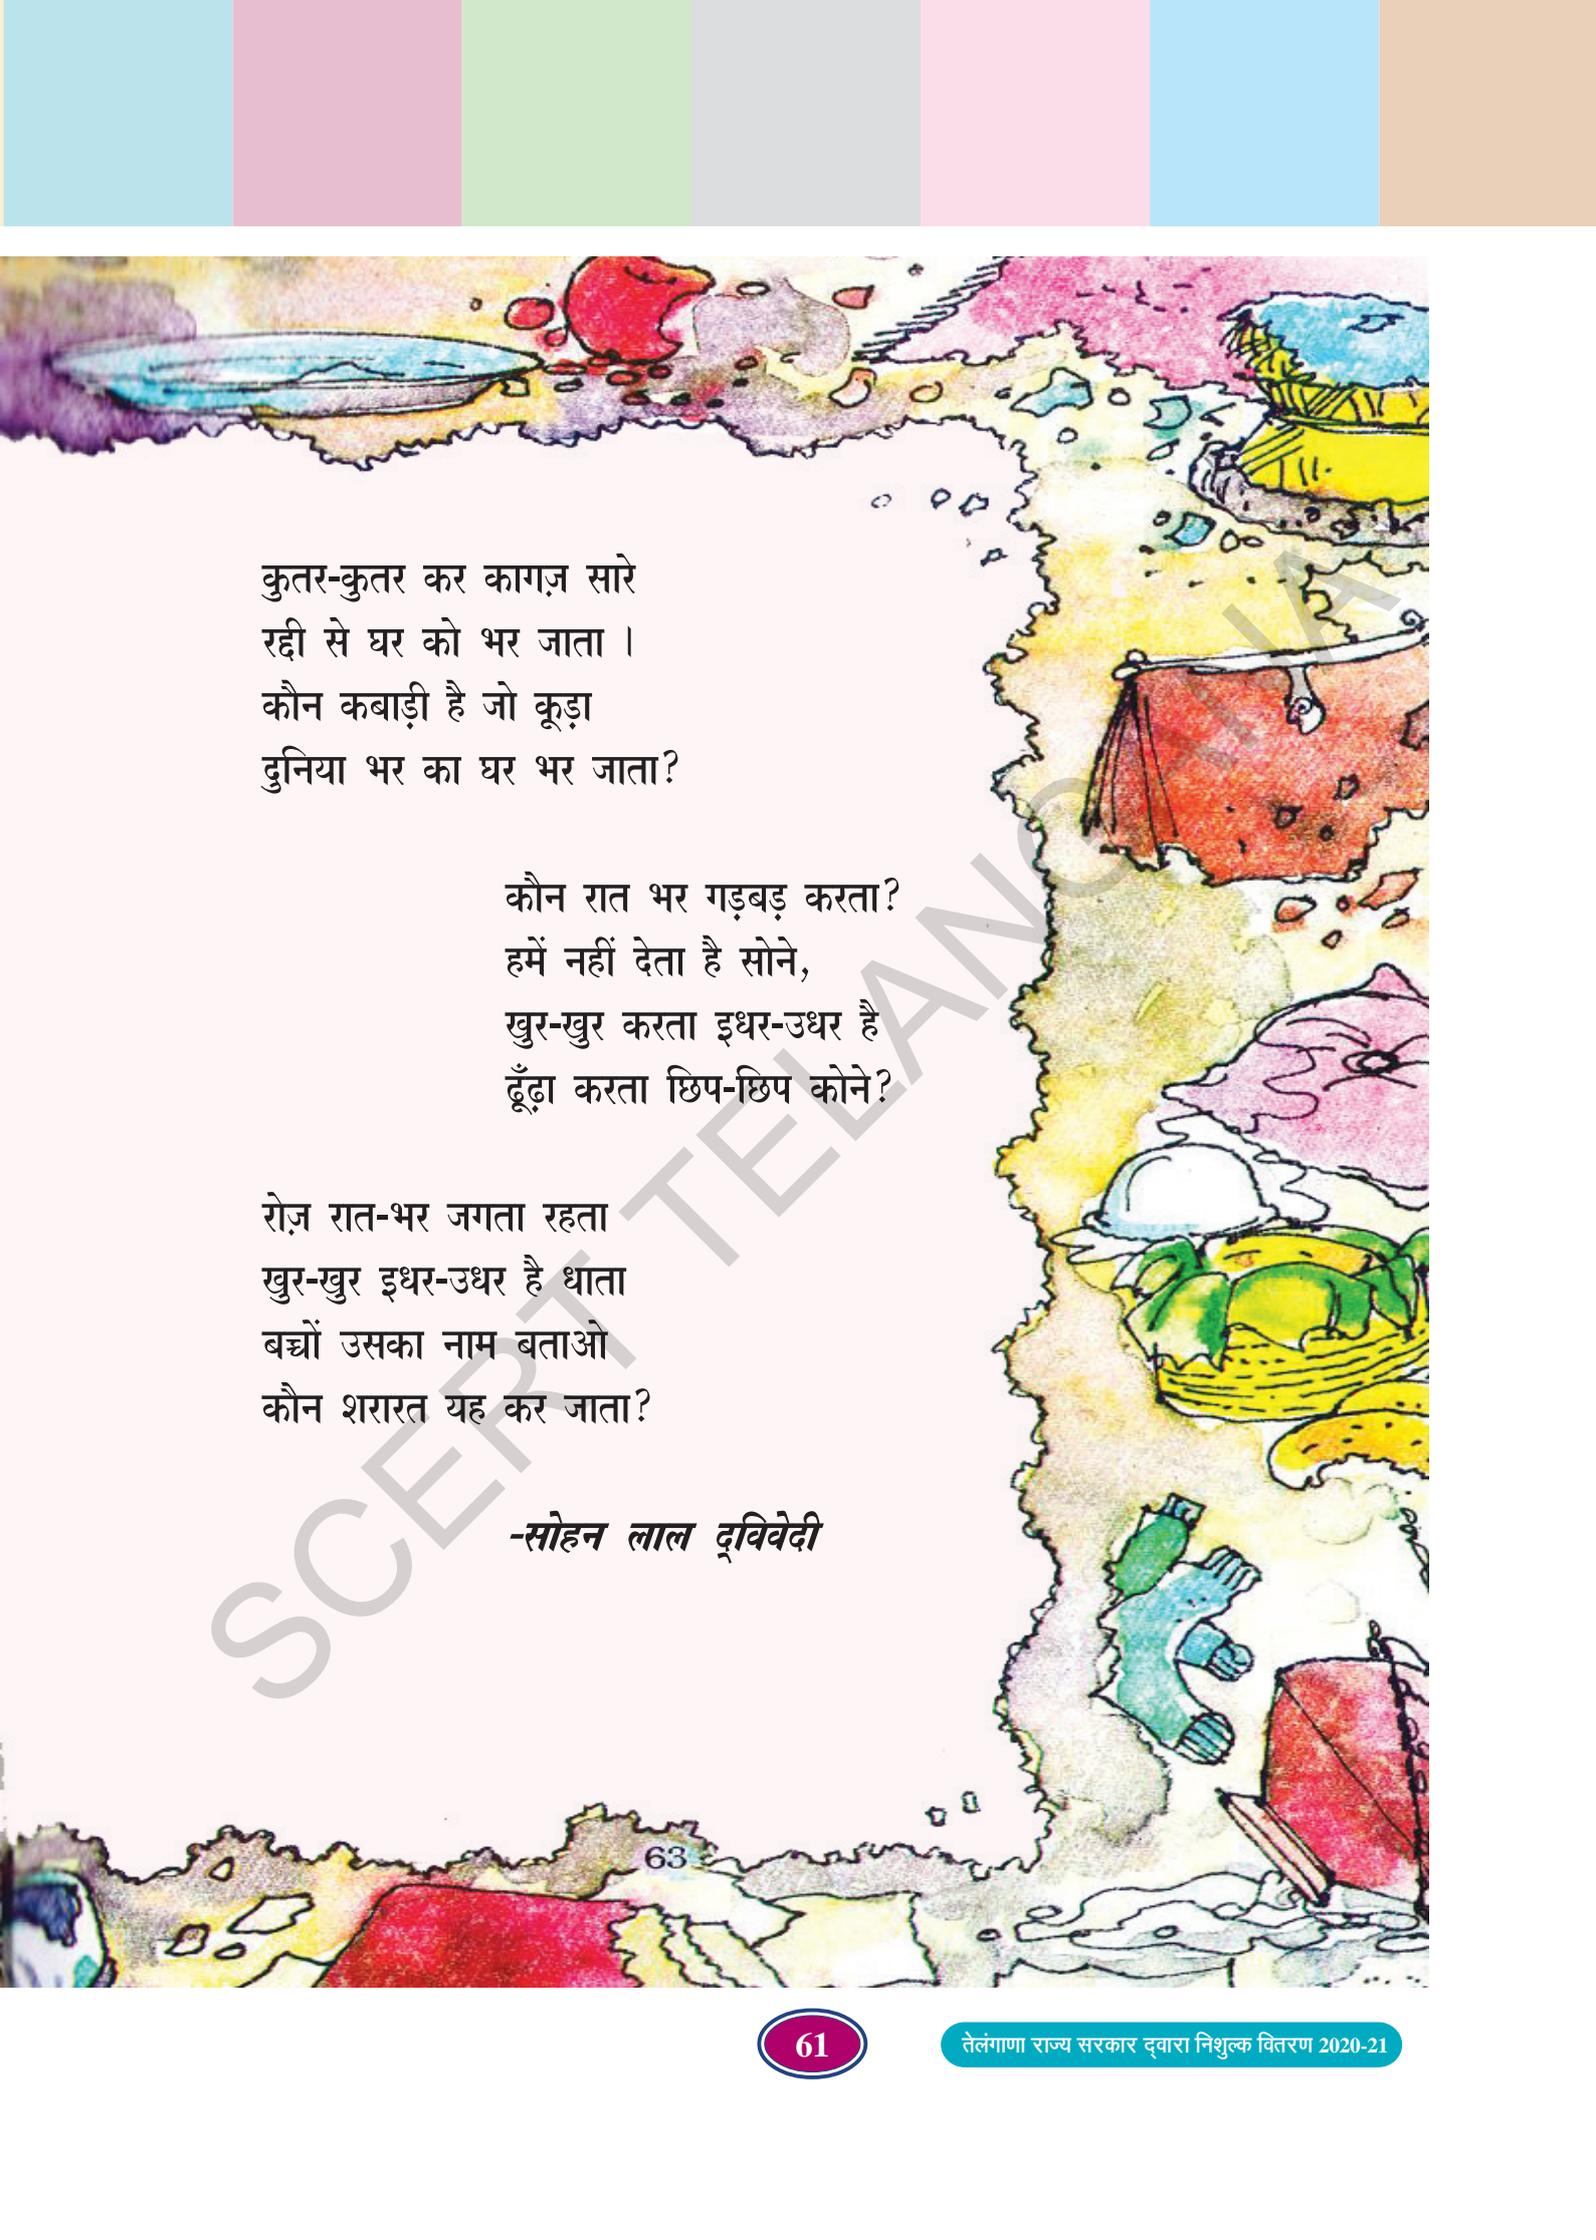 कुतर-कुतर कर कागज़ सारे
रद्दी से घर को भर जाता ।
कौन कबाड़ी है जो कूड़ा
दुनिया भर का घर भर जाता?
कौन रात भर गड़बड़ करता?
हमें नहीं देता है सोने,
खुर-खुर करता इधर-उधर है
ढूँढ़ा करता छिप-छिप कोने?
रोज़ रात-भर जगता रहता
खुर-खुर इधर-उधर है धाता
बच्चों उसका नाम बताओ
कौन शरारत यह कर जाता?
-सोहन लाल द्‌विवेदी
SCERT TELANGANA
63
61
तेलंगाणा राज्य सरकार द्‌वारा निशुल्क वितरण 2020-21